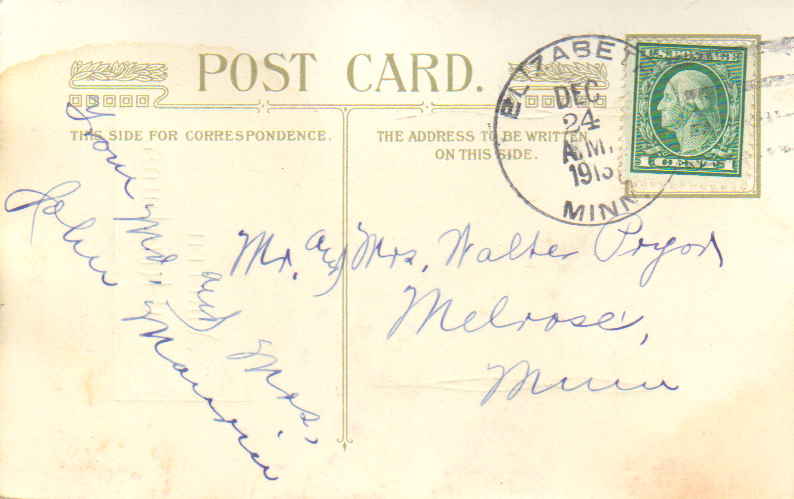 POST CARD.
THIS SIDE FOR CORRESPONDENCE.
THE ADDRESS TO BE WRITTEN
ON THIS SIDE.
ELIZABET
DEC
24
A.M.
1913
MINN.
U.S. POSTAGE
1 CENTS 1
From Mr. and Mrs.
John
Mr. and Mrs. Walter Pryor
Melrose,
Minn